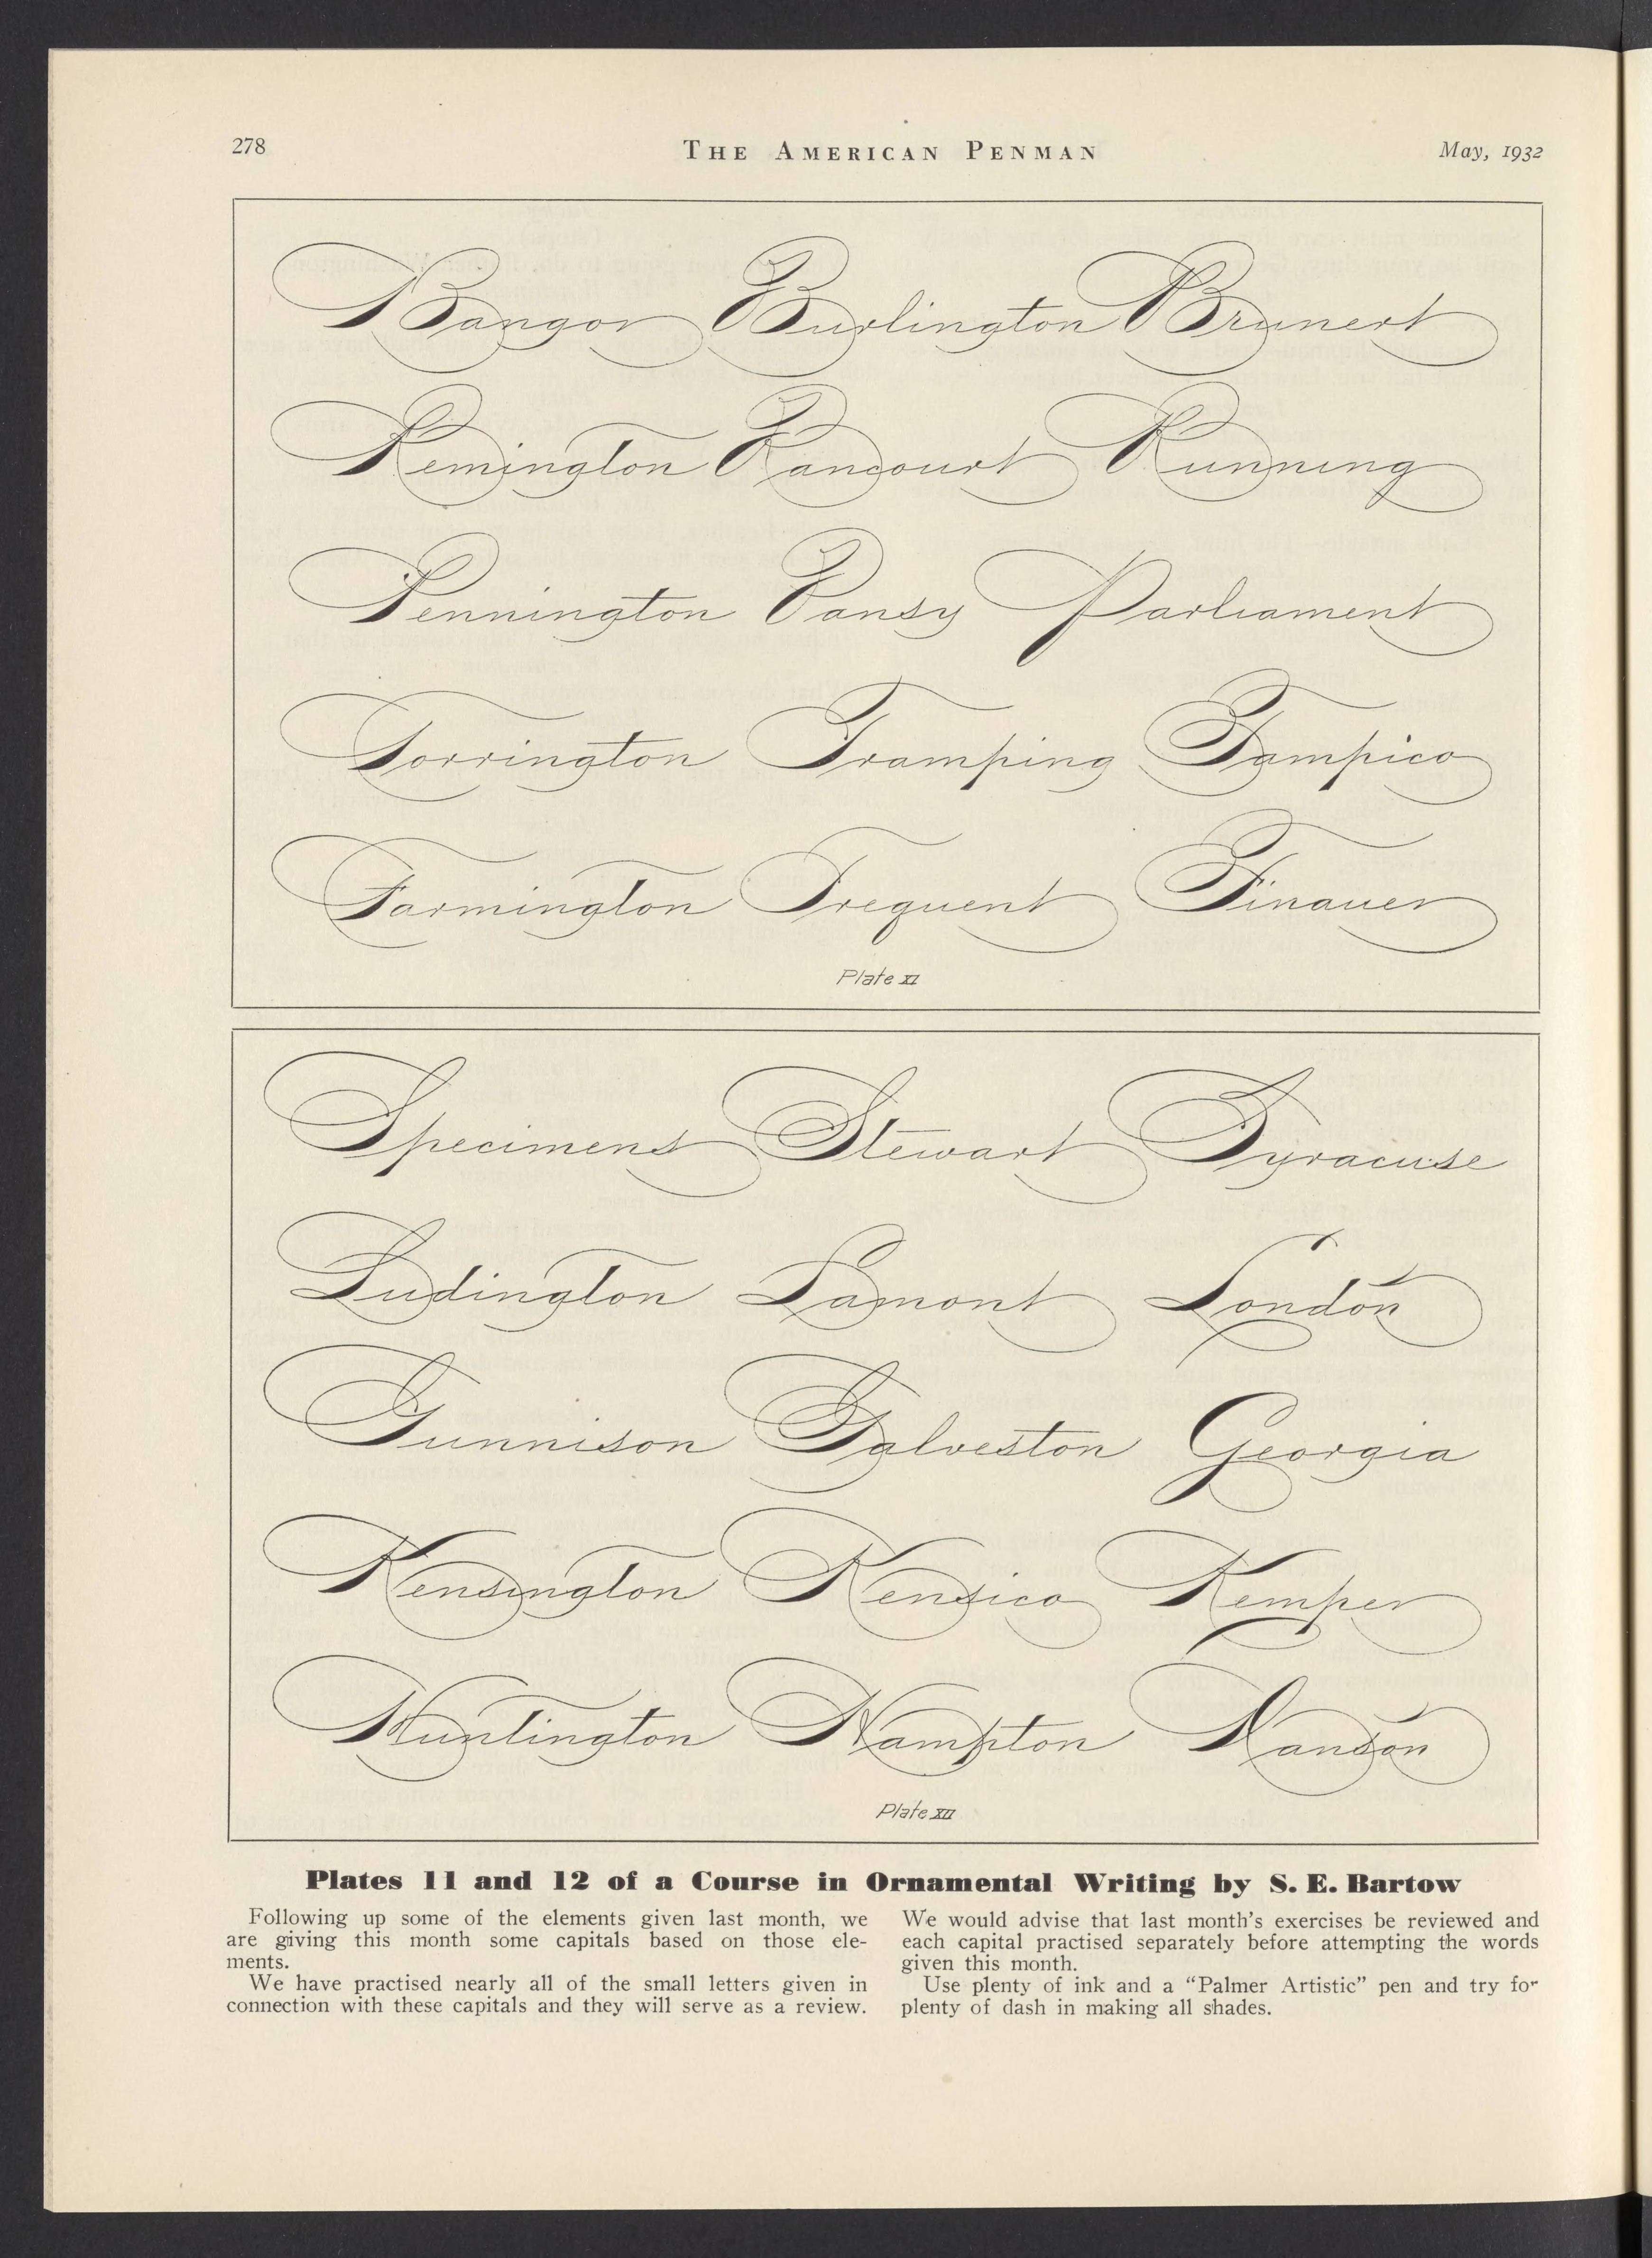 278 THE AMERICAN PENMAN May, 1932
Bangor Burlington Brunert
Remington Rancourt Running
Pennington Pansy Parliament
Torrington Tramping Tampico
Farmington Frequent Finauer
Plate XI
Specimens Stewart Syracuse
Ludington Lamont London
Gunnison Galveston Georgia
Kensington Kensico Kemper
Huntington Hampton Hanson
Plate XII
Plates 11 and 12 of a Course in Ornamental Writing by S. E. Bartow
Following up some of the elements given last month, we
are giving this month some capitals based on those ele-
ments.
We have practised nearly all of the small letters given in
connection with these capitals and they will serve as a review.
We would advise that last month's exercises be reviewed and
each capital practised separately before attempting the words
given this month.
Use plenty of ink and a "Palmer Artistic" pen and try for
plenty of dash in making all shades.